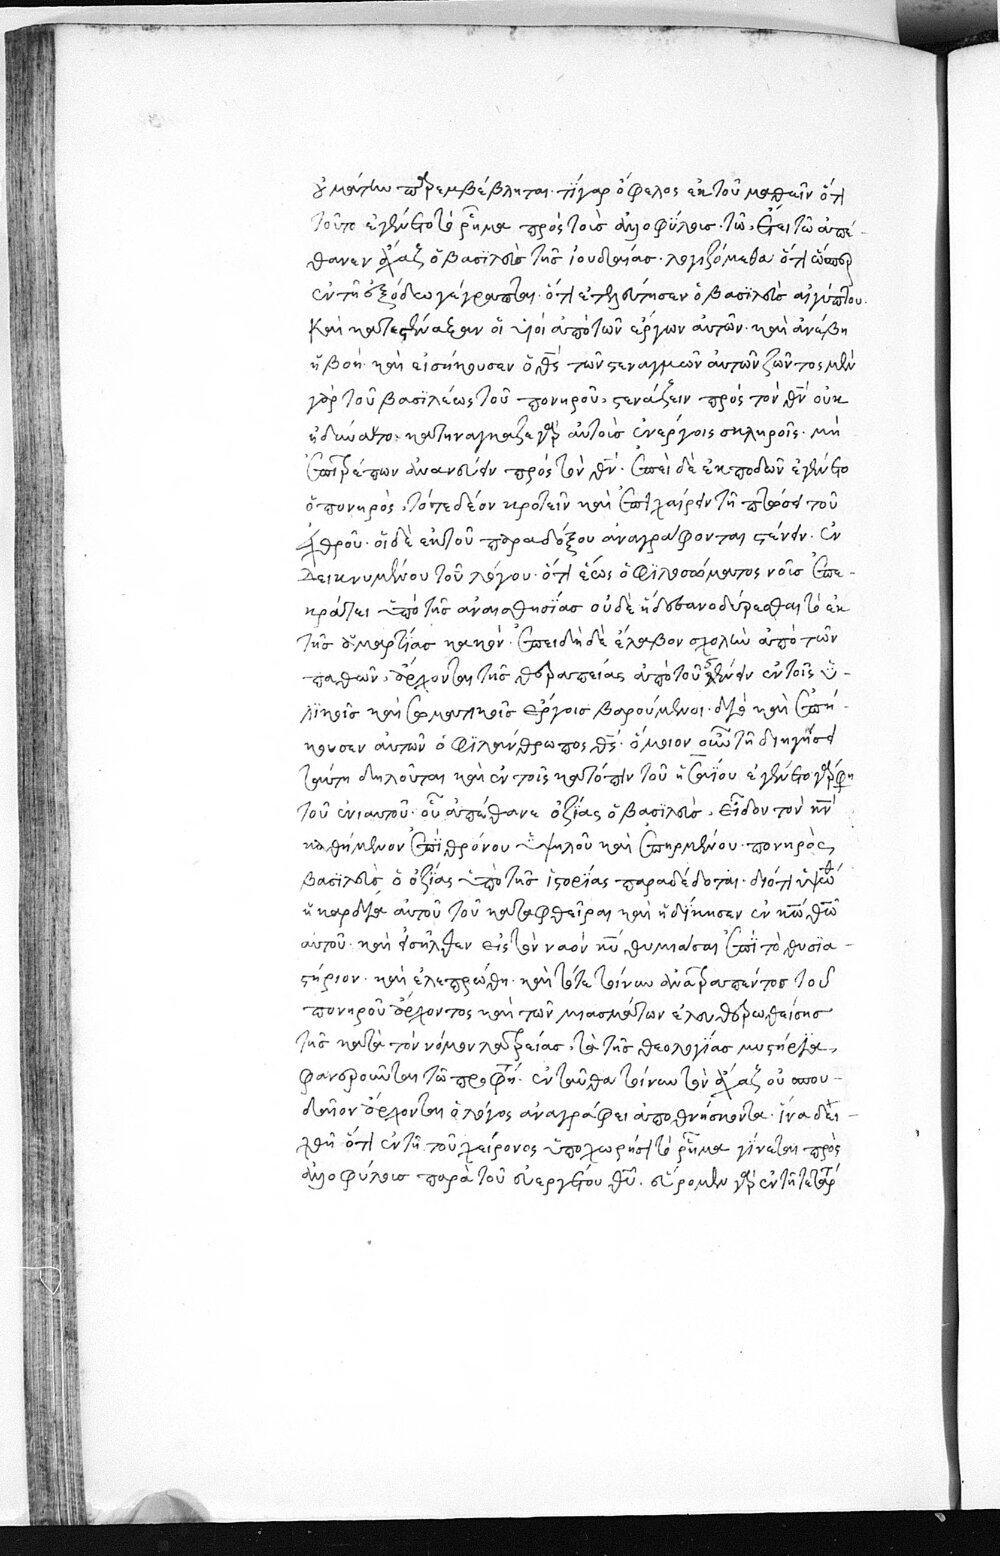 οὐ μάτην παρεμβέβληται· τί γὰρ ὄφελος ἐκ τοῦ μαθεῖν ὅτι
τοῦτο ἐγένετο τὸ ῥῆμα πρὸς τοῖς ἀλλοφύλοις· τῷ ἔτει τῷ ἀπέ-
θανεν ἄχαζ ὁ βασιλεὺς τῆς ἰουδαίας· λογιζόμεθα ὅτι ὥσπερ
ἐν τῇ ἐξόδῳ γέγραπται· ὅτι ἐτελεύτησεν ὁ βασιλεὺς αἰγύπτου·
Καὶ κατεστέναξαν οἱ υἱοὶ ἀπὸ τῶν ἔργων αὐτῶν· καὶ ἀνέβη
ἡ βοή· καὶ εἰσήκουσεν ὁ θς τῶν στεναγμῶν αὐτῶν ζῶντος μὲν
γὰρ τοῦ βασιλέως τοῦ πονηροῦ, στενάξειν πρὸς τὸν θν οὐκ
ἠδύναντο, κατηνάγκαζε γὰρ αὐτοὺς ἐν ἔργοις σκληροῖς· μὴ
ἐπιτρέπων ἀνανεύειν πρὸς τὸν θν· ἐπεὶ δὲ ἐκποδὼν ἐγένετο
ὁ πονηρὸς, τότε δέον κροτεῖν καὶ ἐπιχαίρειν τῇ πτώσει τοῦ
ἐχθροῦ· οἱ δὲ ἐκ τοῦ παραδόξου ἀναγράφονται στένειν· ἐν
δεικνυμένου τοῦ λόγου· ὅτι ἕως ὁ φιλοσώματος νοῦς ἐπε-
κράτει ὑπὸ τῆς ἀναισθησίας οὐδὲ ᾐσθάνοντο ἐκ
τῆς ἁμαρτίας κακὸν· ἐπειδὴ δὲ ἔλαβον σχολὴν ἀπὸ τῶν
παθῶν, ἄρχονται τῆς θεραπείας ἀπὸ τοῦ στένειν ἐν τοῖς ὑ-
λικοῖς καὶ σωματικοῖς ἔργοις βαρούμενοι· διὸ καὶ ἐπή-
κουσεν αὐτῶν ὁ φιλάνθρωπος θς· ὅμοιον οὖν τῇ διηγήσει
ταύτῃ δηλοῦται καὶ ἐν τοῖς κατόπιν τοῦ ἡσαΐου ἐγένετο γὰρ φη
τοῦ ἐνιαυτοῦ· οὗ ἀπέθανε ὀζίας ὁ βασιλεὺς, εἶδον τὸν κν
καθήμενον ἐπὶ θρόνου ὑψηλοῦ καὶ ἐπηρμένου· πονηρὸς,
βασιλεὺς ὁ ὀζίας ὑπὸ τῆς ἱστορίας παραδέδοται· διότι ὑψώθη
ἡ καρδία αὐτοῦ τοῦ καταφθεῖραι καὶ ἠδίκησεν ἐν κω θω
αὐτοῦ· καὶ εἰσῆλθεν εἰς τὸν ναὸν κυ θυμιάσαι ἐπὶ τὸ θυσια-
στήριον· καὶ ἐλεπρώθη· καὶ τότε τοίνυν ἀνατραπέντος τοῦ
πονηροῦ ἄρχοντος καὶ τῶν μιασμάτων ἐλευθερωθείσης
τῆς κατὰ τὸν νόμον λατρείας, τὰ τῆς θεολογίας μυστήρια,
φανεροῦνται τῷ προφή· ἐνταῦθα τοίνυν τὸν ἄχαζ οὐ σπου-
δαῖον ἄρχοντα ὁ λόγος ἀναγράφει ἀποθνήσκοντα· ἵνα δει-
χθῇ ὅτι ἐν τῇ τοῦ χείρονος ὑποχωρήσει τὸ ῥῆμα γίνεται πρὸς
ἀλλοφύλοις παρὰ τοῦ εὐεργέτου θυ· εὕρομεν γὰρ ἐν τῇ τετάρ